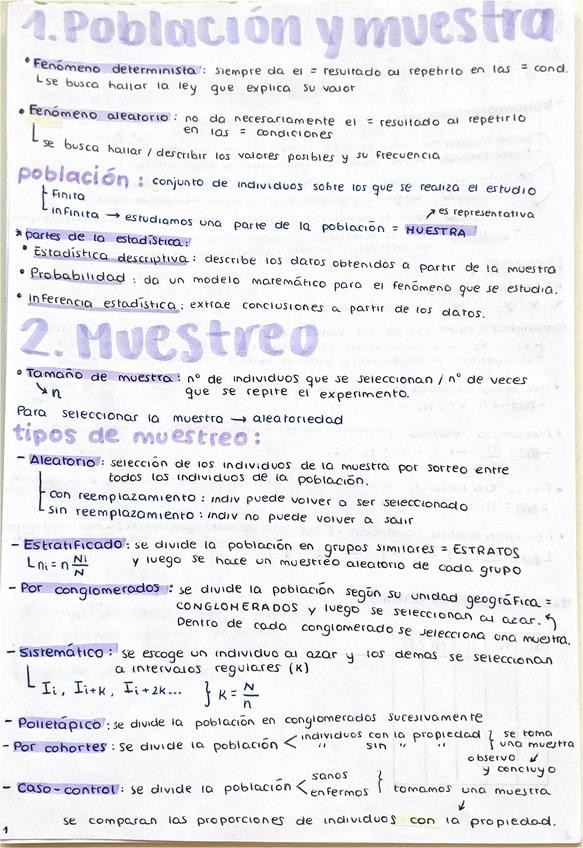 1. Población y muestra
• Fenómeno determinista: siempre da el = resultado al repetirlo en las = cond.
se busca hallar la ley que explica su valor
• Fenómeno aleatorio: no da necesariamente el = resultado al repetirlo
en las = condiciones
se busca hallar / describir los valores posibles y su frecuencia
población: conjunto de individuos sobre los que se realiza el estudio
Finita
↗ es representativa
Infinita → estudiamos una parte de la población = MUESTRA
* partes de la estadística:
• Estadística descriptiva: describe los datos obtenidos a partir de la muestra
• Probabilidad: da un modelo matemático para el fenómeno que se estudia.
• Inferencia estadística: extrae conclusiones a partir de los datos.
2. Muestreo
• Tamaño de muestra: nº de individuos que se seleccionan / nº de veces
↘ n que se repite el experimento.
Para seleccionar la muestra → aleatoriedad
tipos de muestreo:
- Aleatorio: selección de los individuos de la muestra por sorteo entre
todos los individuos de la población.
con reemplazamiento: indiv puede volver a ser seleccionado
sin reemplazamiento: indiv no puede volver a salir
- Estratificado: se divide la población en grupos similares = ESTRATOS
ni = n Ni/N y luego se hace un muestreo aleatorio de cada grupo
- Por conglomerados: se divide la población según su unidad geográfica =
CONGLOMERADOS y luego se seleccionan al azar.
Dentro de cada conglomerado se selecciona una muestra.
- Sistemático: se escoge un individuo al azar y los demas se seleccionan
a intervalos regulares (k)
Ii, Ii+k, Ii+2k... } k = N/n
- Polietápico: se divide la población en conglomerados sucesivamente
- Por cohortes: se divide la población < individuos con la propiedad } se toma
" sin " " una muestra
observo ↙
y concluyo
- Caso-control: se divide la población < sanos
enfermos } tomamos una muestra
↙
se comparan las proporciones de individuos con la propiedad.
1